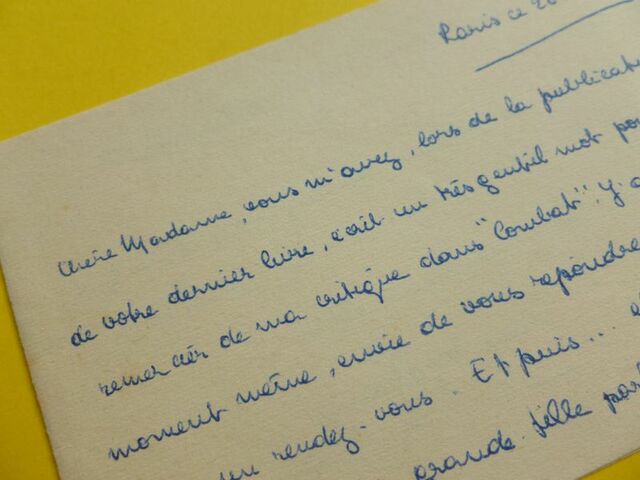 Paris ce 20
Chère Madame, vous m'avez, lors de la publicat
de votre dernier livre, écrit un très gentil mot pou
remercier de ma critique dans "Combat". J'a
moment même, envie de vous répondre
un rendez-vous. Et puis... e
grande fille par